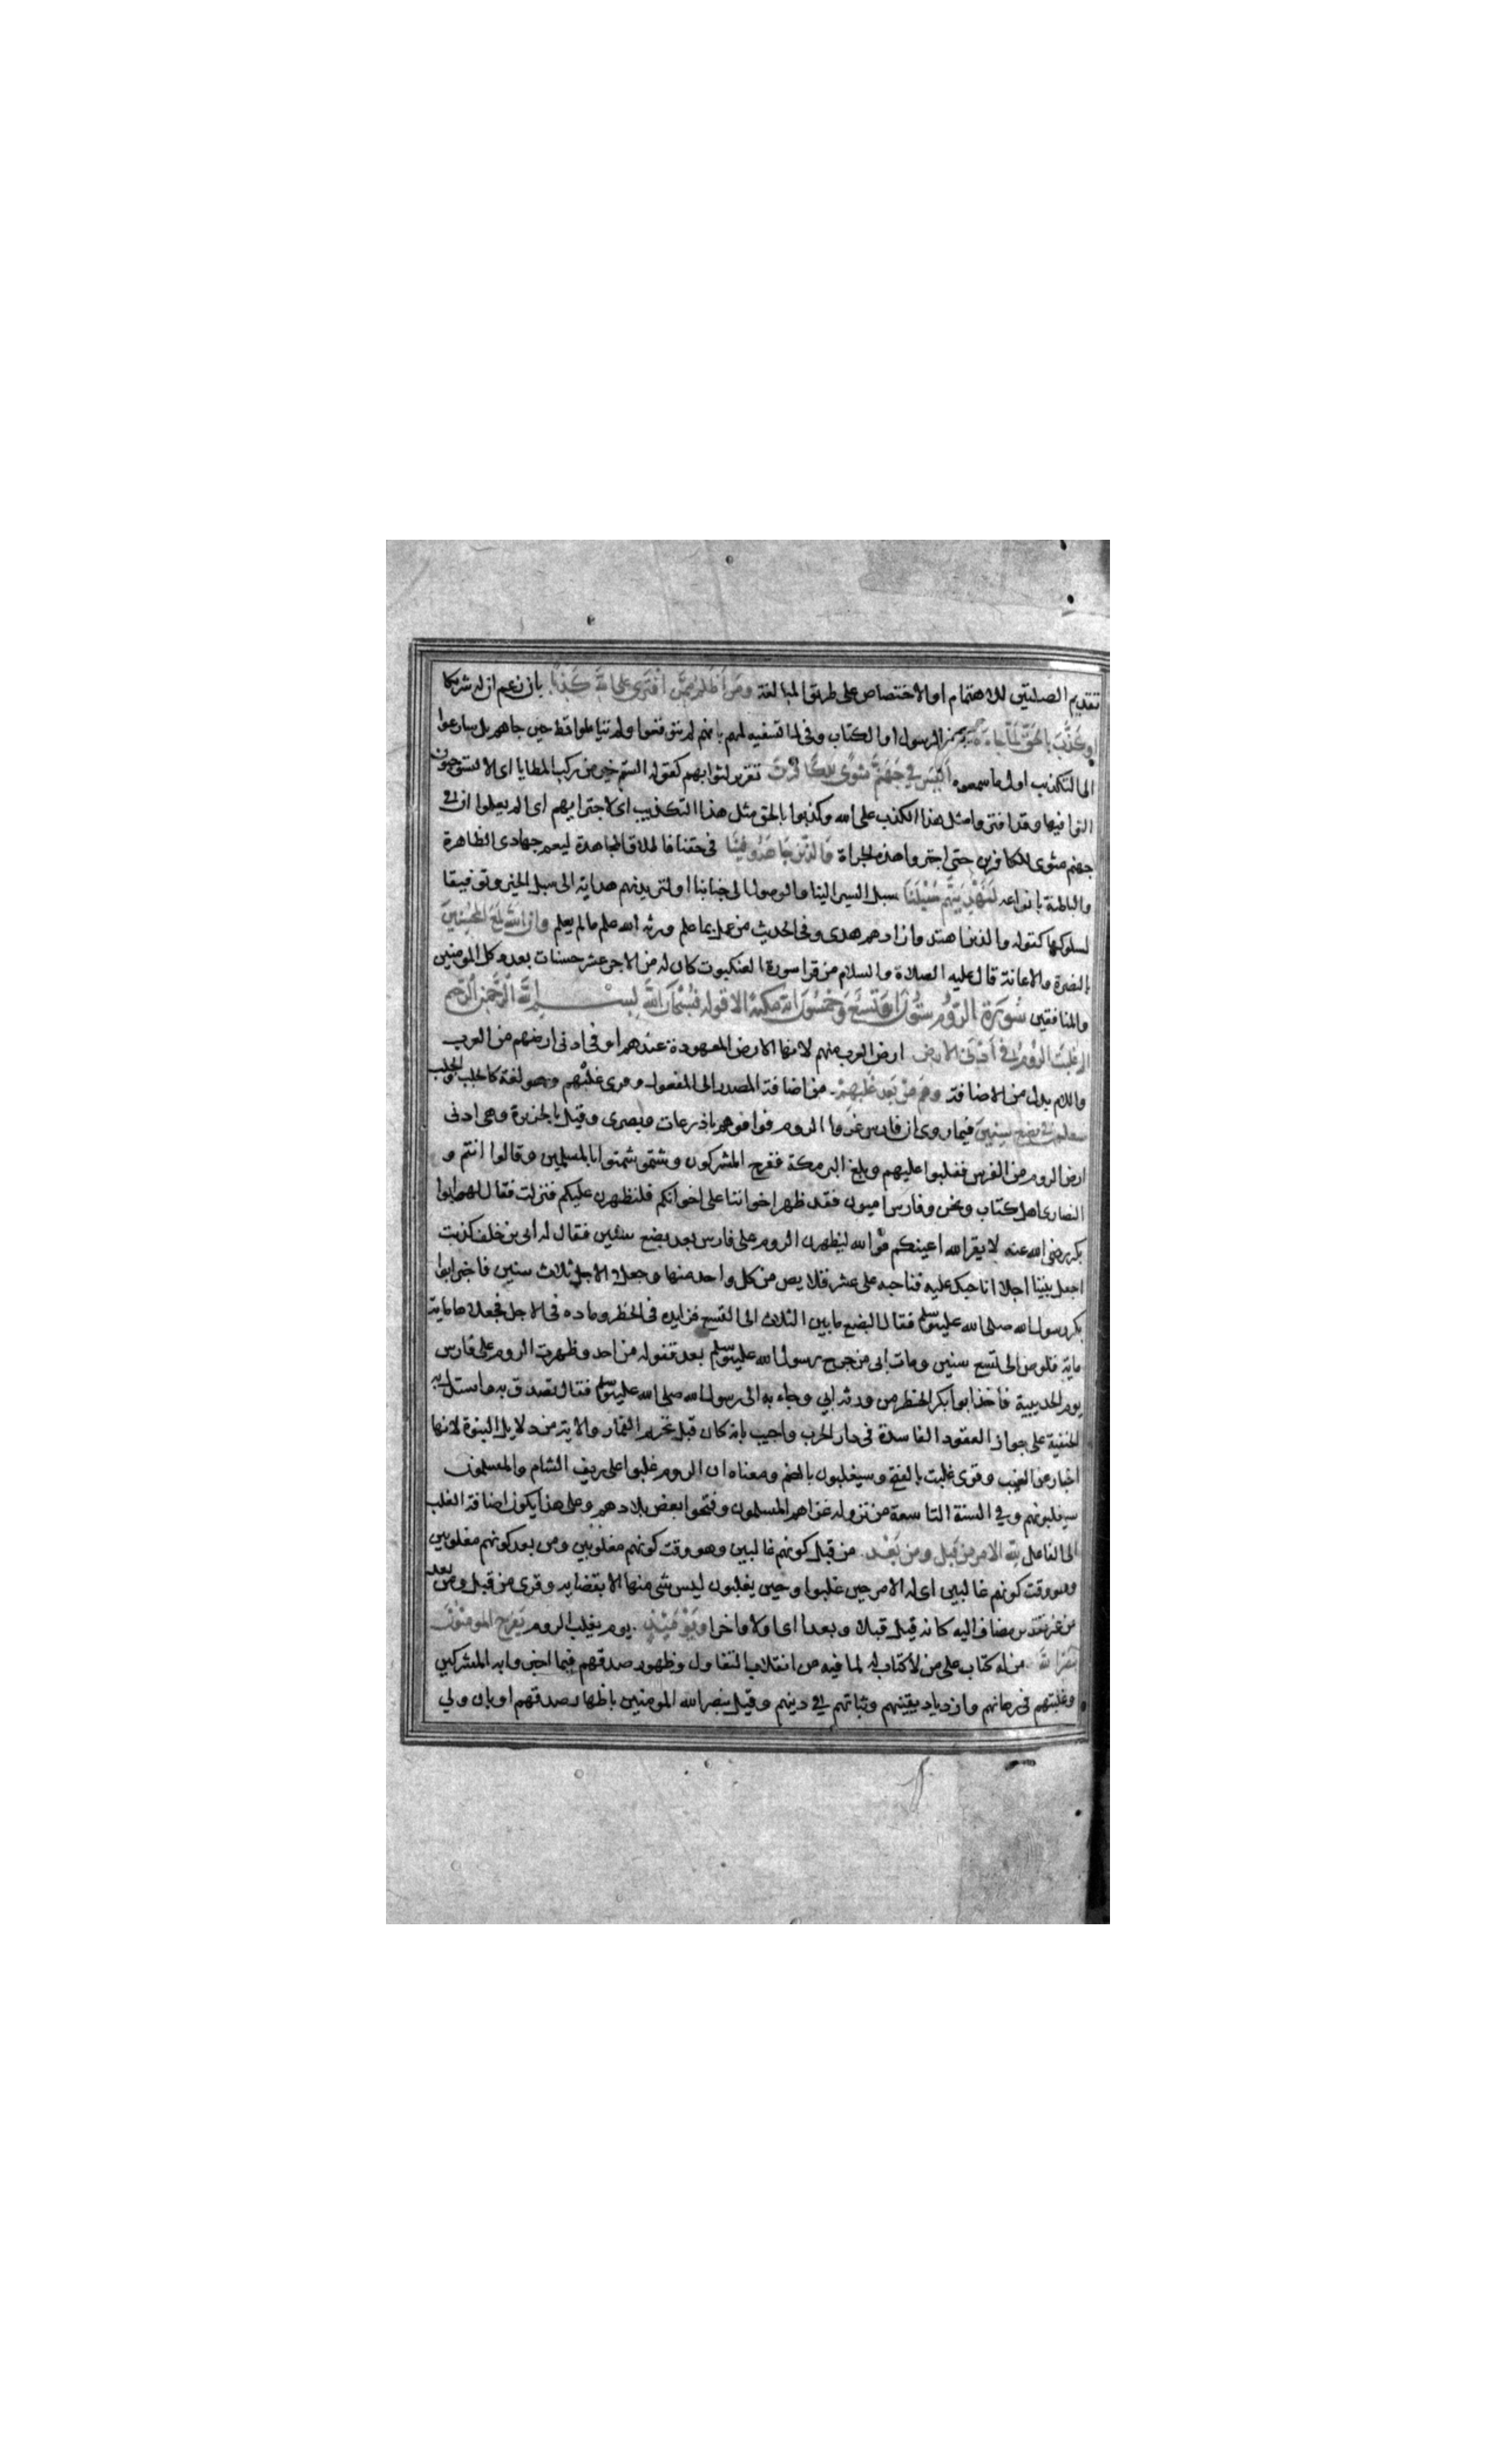 تقديم الصلتين للاهتمام او الاختصاص على طريق المبالغة ومن اظلم ممن افترى على الله كذبا بان زعم ان له شريكا
او كذب بالحق لما جاءه يعني الرسول او الكتاب وفي لما تسفيه لهم بانهم لم يتوقفوا ولم يتاملوا قط حين جاهم بل سارعوا
الى التكذيب اول ما سمعوه اليس في جهنم مثوى للكافرين تقرير لثوابهم كقوله الستم خير من ركب المطايا اى الا يستوجبون
الثوا فيها وقد افتروا مثل هذا الكذب على الله وكذبوا بالحق مثل هذا التكذيب اى لاجترايهم اى الم يعلموا ان في
جهنم مثوى للكافرين حتى اجتروا هذه الجراة والذين جاهدوا فينا في حقنا فاطلاق المجاهدة ليعم جهادى الظاهرة
والباطنة بانواعه لنهدينهم سبلنا سبل السير الينا والوصول الى جنابنا او لنزيدنهم هداية الى سبل الخير وتوفيقا
لسلوكها كقوله والذين اهتدوا زادهم هدى وفي الحديث من عمل بما علم ورثه الله علم ما لم يعلم وان الله لمع المحسنين
بالنصرة والاعانة قال عليه الصلاة والسلام من قرا سورة العنكبوت كان له من الاجر عشر حسنات بعدد كل المومنين
والمنافقين سورة الروم ستون او تسع وخمسون اية مكية الا قوله فسبحان الله بسم الله الرحمن الرحيم
الم غلبت الروم في ادنى الارض ارض العرب منهم لانها الارض المعهودة عندهم او في ادنى ارضهم من العرب
واللام بدل من الاضافة وهم من بعد غلبهم من اضافة المصدر الى المفعول وقرى غلبهم وهو لغة كالحلب والجلب
سيغلبون في بضع سنين فيما روى ان فارس غزوا الروم فوافوهم باذرعات وبصرى وقيل بالجزيرة وهى ادنى
ارض الروم من الفرس فغلبوا عليهم وبلغ الخبر مكة ففرح المشركون وشمتوا بالمسلمين وقالوا انتم و
النصارى اهل كتاب ونحن وفارس اميون فقد ظهر اخواننا على اخوانكم فلنظهرن عليكم فنزلت فقال لهم ابوا
بكر رضى الله عنه لا يقر الله اعينكم فوالله ليظهرن الروم على فارس بعد بضع سنين فقال له ابى بن خلف كذبت
اجعل بيننا اجلا اناحبك عليه فناحبه على عشر قلايص من كل واحد منها وجعلا الاجل ثلاث سنين فاخبر ابوا
بكر رسول الله صلى الله عليه وسلم فقال البضع ما بين الثلاث الى التسع فزايده في الخطر وماده في الاجل فجعلاها ماية
ماية قلوص الى تسع سنين ومات ابى من جرح رسول الله عليه وسلم بعد قفوله من احد وظهرت الروم على فارس
يوم الحديبية فاخذ ابوا بكر الخطر من ورثة ابي وجاء به الى رسول الله صلى الله عليه وسلم فقال تصدق به واستدل به
الحنفية على جواز العقود الفاسدة في دار الحرب واجيب بانه كان قبل تحريم القمار والاية من دلايل النبوة لانها
اخبار من الغيب وقرى غلبت بالفتح وسيغلبون بالضم ومعناه ان الروم غلبوا على ريف الشام والمسلمون
سيغلبونهم وفي السنة التاسعة من نزوله غزاهم المسلمون وفتحوا بعض بلادهم وعلى هذا يكون اضافة الغلب
الى الفاعل لله الامر من قبل ومن بعد من قبل كونهم غالبين وهو وقت كونهم مغلوبين ومن بعد كونهم مغلوبين
وهو وقت كونهم غالبين اى له الامر حين غلبوا وحين يغلبون ليس شى منها الا بقضايه وقرى من قبل ومن بعد
من غير تقدير مضاف اليه كانه قيل قبلا وبعدا اى اولا واخرا ويومئذ يوم يغلب الروم يفرح المومنون
بنصر الله من له كتاب على من لا كتاب له لما فيه من انقلاب التفاول وظهور صدقهم فيما اخبروا به المشركين
وغلبتهم في رهانهم وازدياد يقينهم وثباتهم في دينهم وقيل بنصر الله المومنين باظهار صدقهم او بان ولي